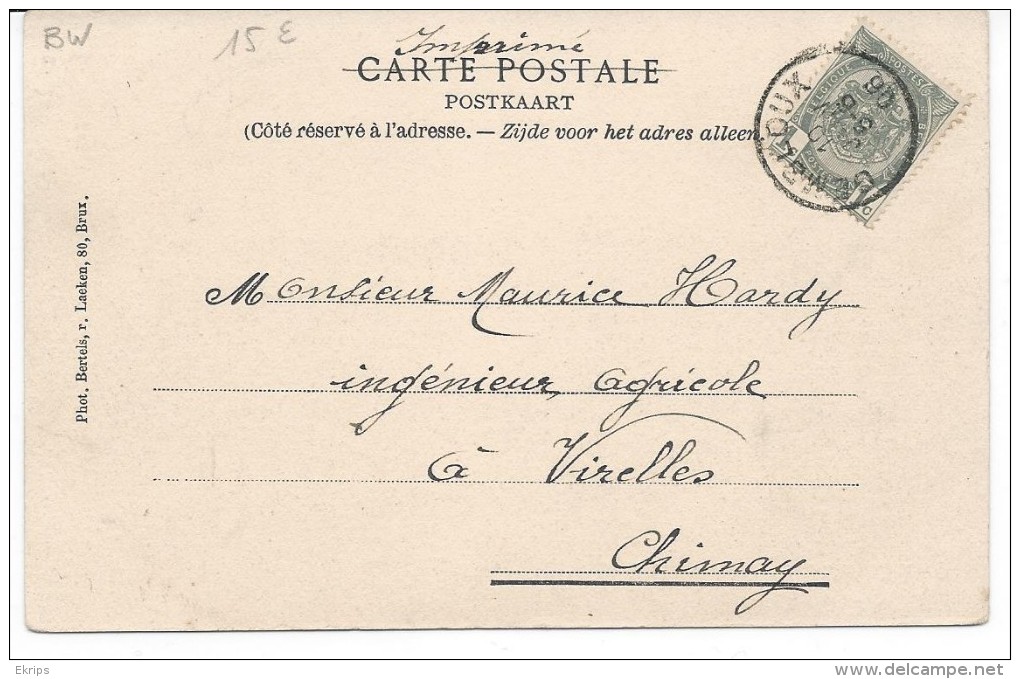 BW
15 €
Imprimé
CARTE POSTALE
POSTKAART
(Côté réservé à l'adresse. — Zijde voor het adres alleen
Phot. Bertels, r. Laeken, 80, Brux.
Monsieur Maurice Hardy
ingénieur agricole
à Virelles
Chimay
GEMBLOUX
Ekrips
www.delcampe.net